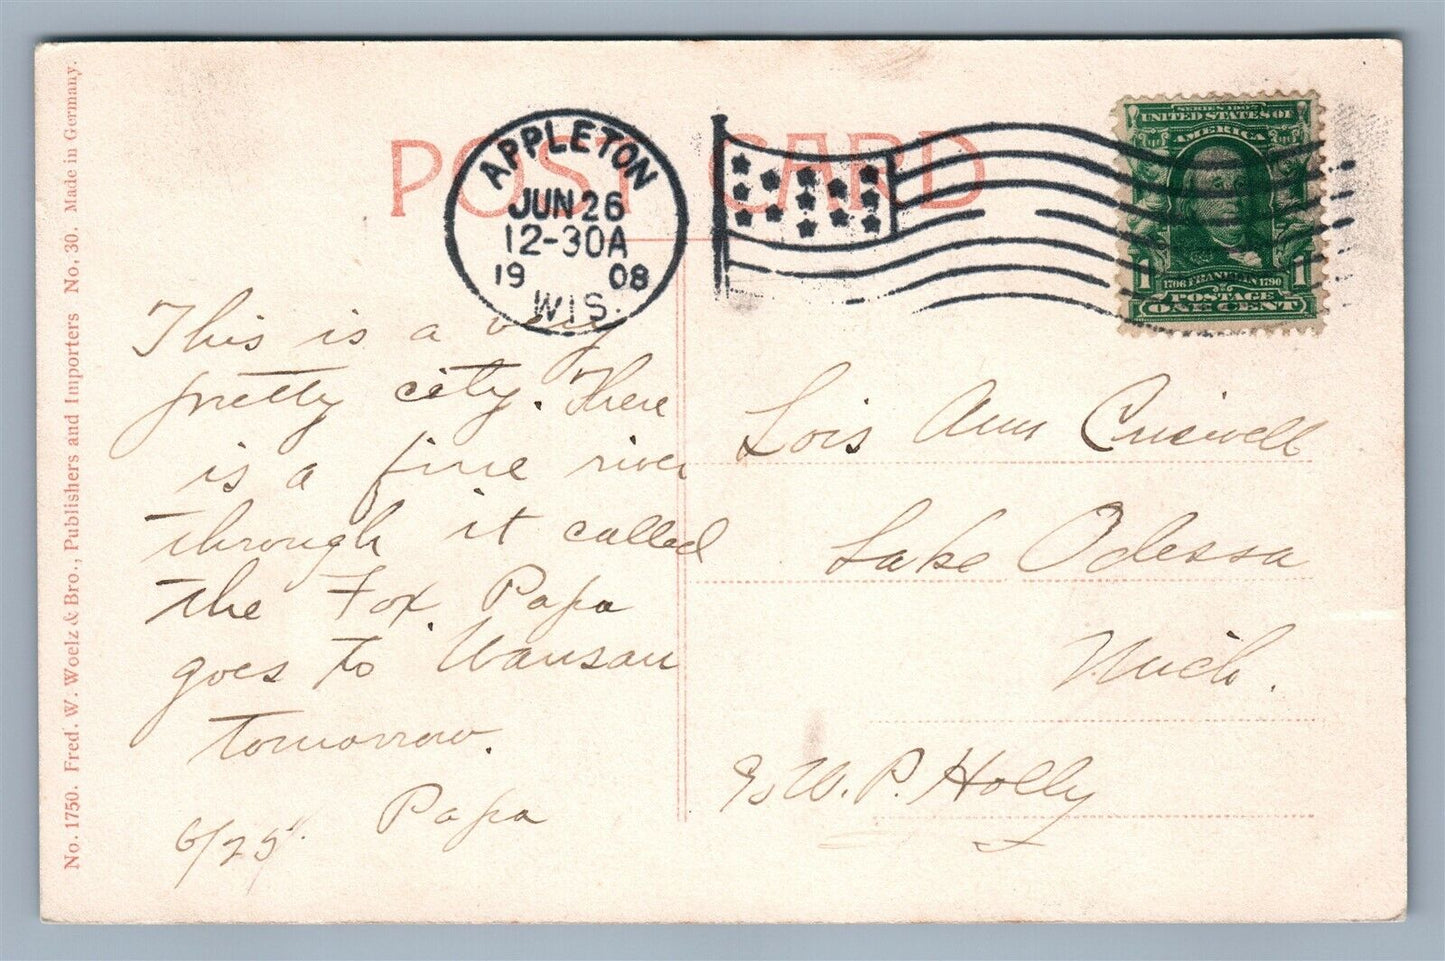 POST CARD
APPLETON
JUN 26
12-30A
1908
WIS.
SERIES 1902
UNITED STATES OF
AMERICA
1706 FRANKLIN 1790
1 1
POSTAGE
ONE CENT
This is a very
pretty city. There
is a fine river
through it called
the Fox. Papa
goes to Wausau
tomorrow.
Papa
6/25
Lois Ann Criswell
Lake Odessa
Mich.
% W. P. Holly
No. 1750. Fred. W. Woelz & Bro., Publishers and Importers No. 30. Made in Germany.